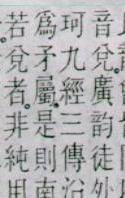 音兌。廣韵徒外
珂九經三傳沿
爲矛屬。是則南
若兌者。非純用